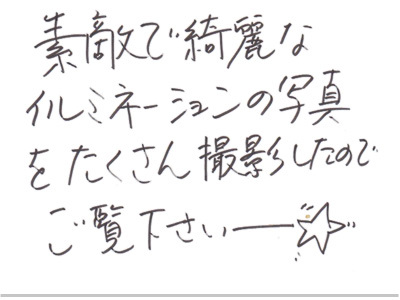 素敵で綺麗な
イルミネーションの写真
をたくさん撮影したので
ご覧下さいー☆